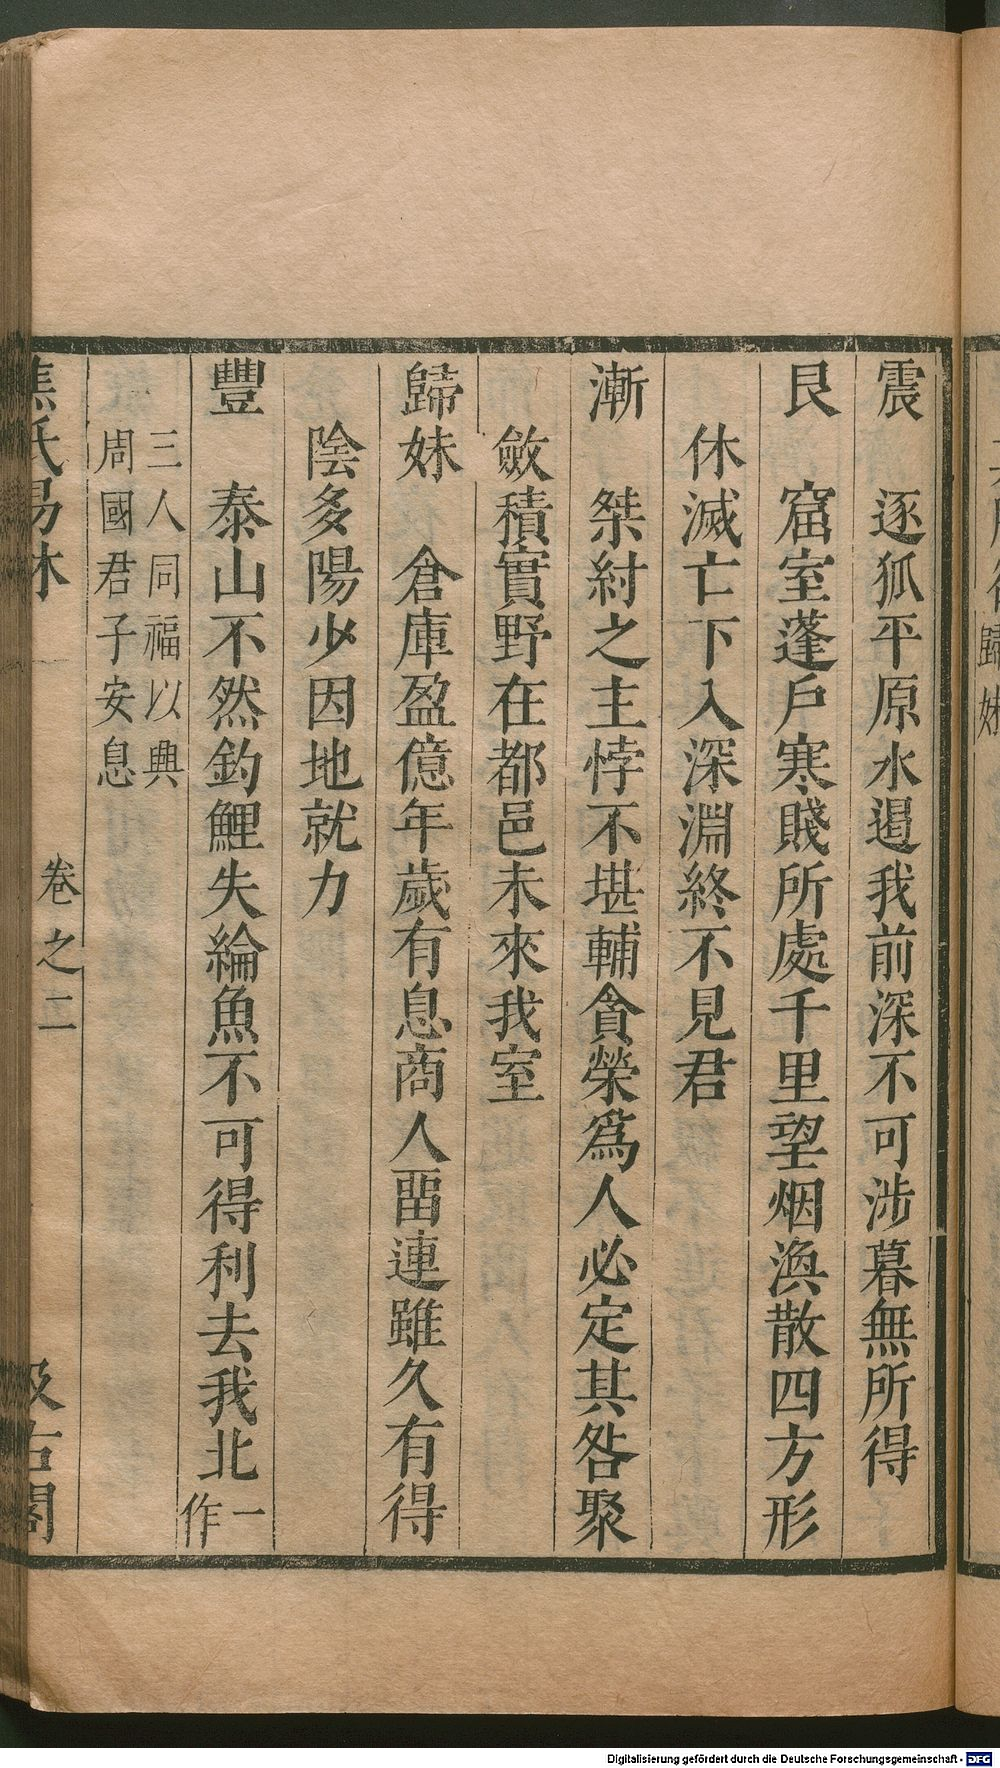 震 逐狐平原水遏我前深不可涉暮無所得
艮 窟室蓬戶寒賤所處千里望烟渙散四方形
休滅亡下入深淵終不見君
漸 桀紂之主悖不堪輔貪榮爲人必定其咎聚
斂積實野在都邑未來我室
歸妹 倉庫盈億年歲有息商人畱連雖久有得
陰多陽少因地就力
豐 泰山不然釣鯉失綸魚不可得利去我北一作
三人同福以興
周國君子安息
焦氏易林 卷之二 汲古閣
歸妹
Digitalisierung gefördert durch die Deutsche Forschungsgemeinschaft - DFG